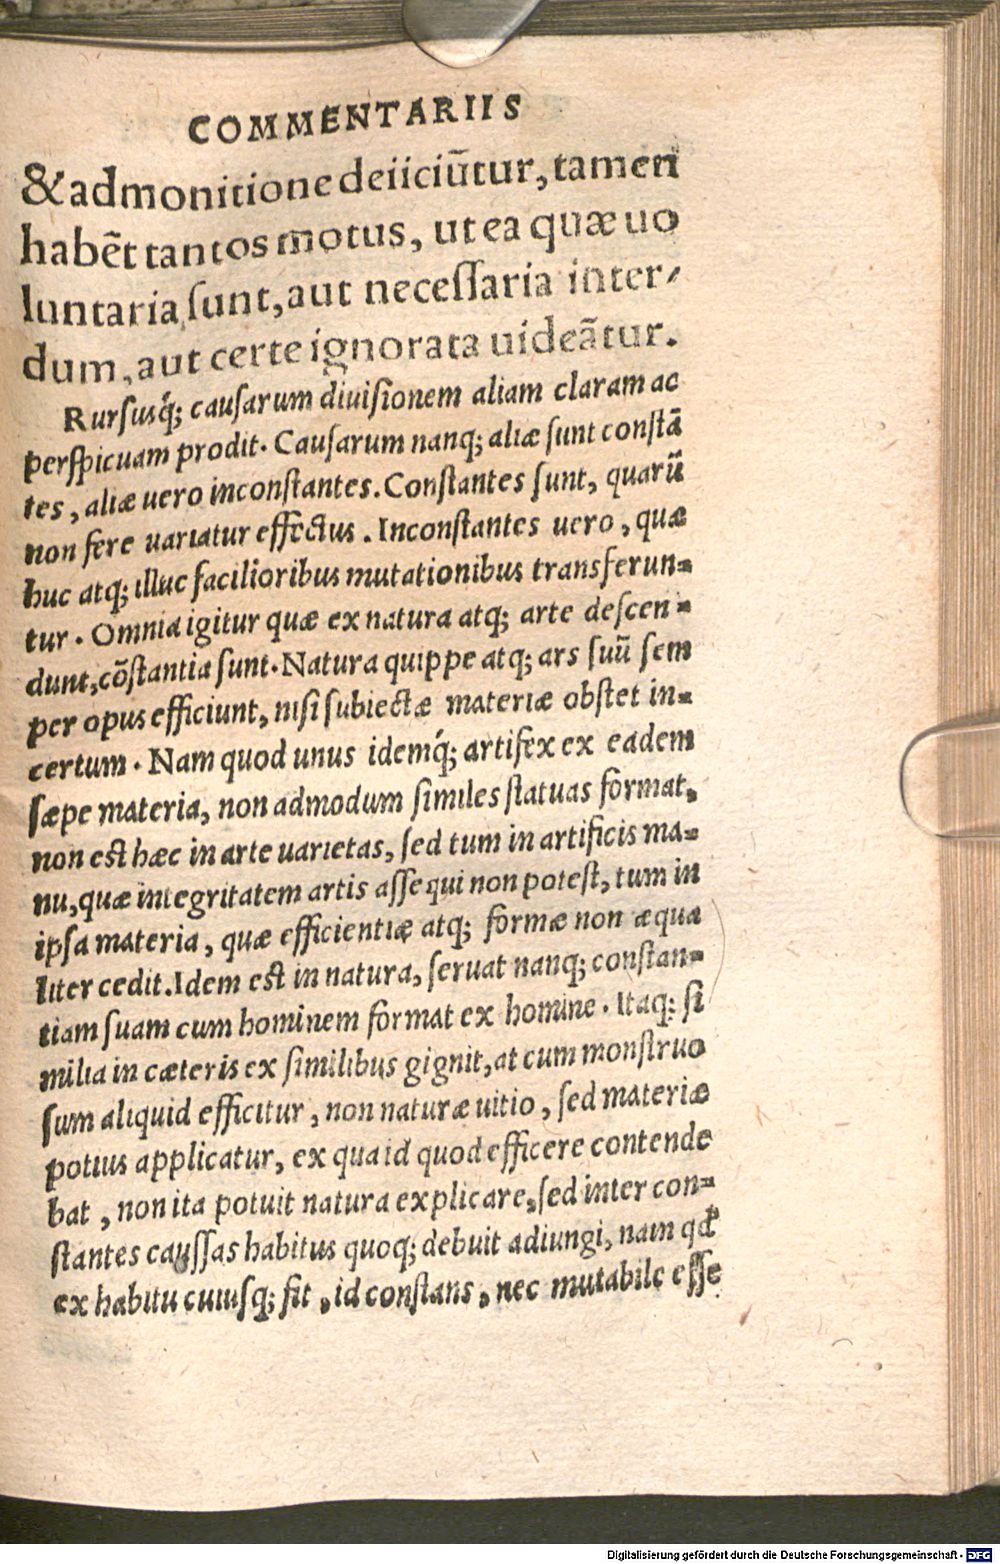 COMMENTARIIS
& admonitione deiiciūtur, tamen
habēt tantos motus, ut ea quæ uo
luntaria sunt, aut necessaria inter-
dum, aut certe ignorata uideātur.
Rursusq́; causarum diuisionem aliam claram ac
perspicuam prodit. Causarum nanq; aliæ sunt constā
tes, aliæ uero inconstantes. Constantes sunt, quarū
non fere uariatur effectus. Inconstantes uero, quæ
huc atq; illuc facilioribus mutationibus transferun-
tur. Omnia igitur quæ ex natura atq; arte descen-
dunt, cōstantia sunt. Natura quippe atq; ars suū sem
per opus efficiunt, nisi subiectæ materiæ obstet in-
certum. Nam quod unus idemq́; artifex ex eadem
sæpe materia, non admodum similes statuas format,
non est hæc in arte uarietas, sed tum in artificis ma-
nu, quæ integritatem artis assequi non potest, tum in
ipsa materia, quæ efficientię atq; formæ non æqua
liter cedit. Idem est in natura, seruat nanq; constan-
tiam suam cum hominem format ex homine. Itaq; si
milia in cæteris ex similibus gignit, at cum monstruo
sum aliquid efficitur, non naturæ uitio, sed materiæ
potius applicatur, ex qua id quod efficere contende
bat, non ita potuit natura explicare, sed inter con-
stantes caussas habitus quoq; debuit adiungi, nam qď
ex habitu cuiusq; fit, id constans, nec mutabile esse
Digitalisierung gefördert durch die Deutsche Forschungsgemeinschaft - DFG